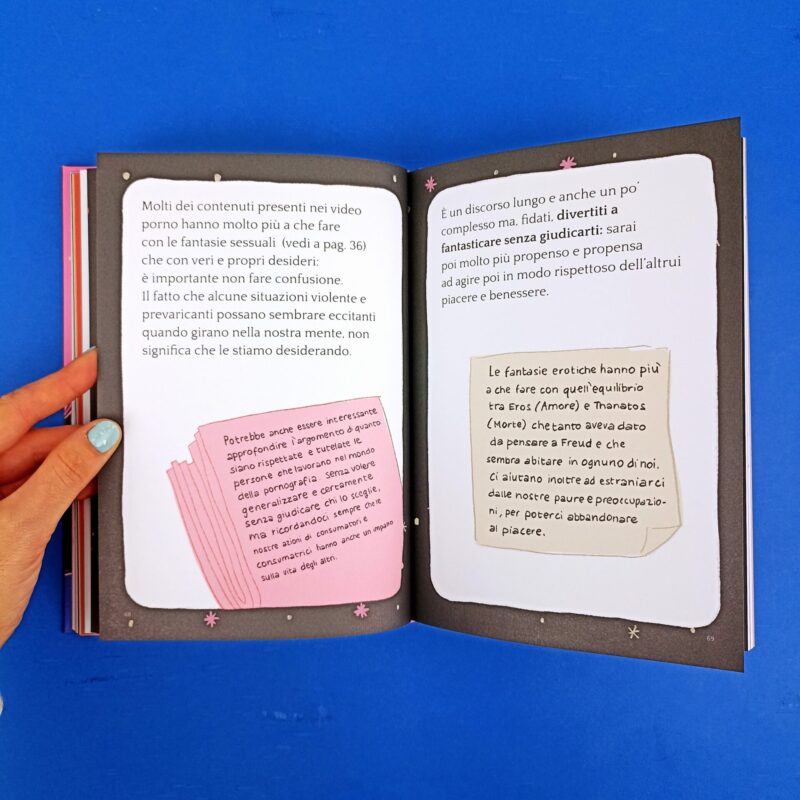 Molti dei contenuti presenti nei video
porno hanno molto più a che fare
con le fantasie sessuali (vedi a pag. 36)
che con veri e propri desideri:
è importante non fare confusione.
Il fatto che alcune situazioni violente e
prevaricanti possano sembrare eccitanti
quando girano nella nostra mente, non
significa che le stiamo desiderando.
Potrebbe anche essere interessante
approfondire l'argomento di quanto
siano rispettate e tutelate le
persone che lavorano nel mondo
della pornografia. Senza volere
generalizzare e certamente
senza giudicare chi lo sceglie,
ma ricordandoci sempre che le
nostre azioni di consumatori e
consumatrici hanno anche un impatto
sulla vita degli altri.
68
È un discorso lungo e anche un po'
complesso ma, fidati, divertiti a
fantasticare senza giudicarti: sarai
poi molto più propenso e propensa
ad agire poi in modo rispettoso dell'altrui
piacere e benessere.
Le fantasie erotiche hanno più
a che fare con quell'equilibrio
tra Eros (Amore) e Thanatos
(Morte) che tanto aveva dato
da pensare a Freud e che
sembra abitare in ognuno di noi.
Ci aiutano inoltre ad estraniarci
dalle nostre paure e preoccupazio-
ni, per poterci abbandonare
al piacere.
69